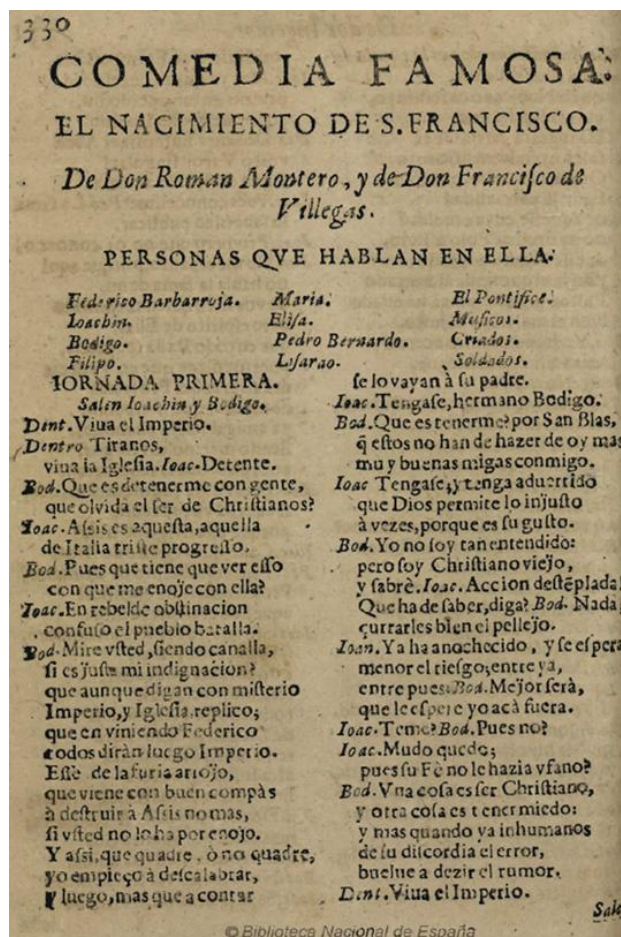 330
COMEDIA FAMOSA:
EL NACIMIENTO DE S. FRANCISCO.
De Don Roman Montero, y de Don Franciſco de
Villegas.
PERSONAS QVE HABLAN EN ELLA:
Federico Barbarroja. Maria. El Pontifice.
Ioachin. Eliſa. Muſicos.
Bodigo. Pedro Bernardo. Criados.
Filipo. Liſarao. Soldados.
IORNADA PRIMERA.
Salen Ioachin y Bodigo.
Dent. Viua el Imperio.
Dentro Tiranos,
viua la Igleſia. Ioac. Detente.
Bod. Que es detenerme con gente,
que olvida el ſer de Chriſtianos?
Ioac. Aſsis es aqueſta, aquella
de Italia triſte progreſſo.
Bod. Pues que tiene que ver eſſo
con que me enoje con ella?
Ioac. En rebelde obſtinacion
confuſo el pueblo batalla.
Bod. Mire vſted, ſiendo canalla,
ſi es juſta mi indignacion?
que aunque digan con miſterio
Imperio, y Igleſia, replico;
que en viniendo Federico
todos diràn luego Imperio.
Eſſe de la furia arrojo,
que viene con buen compàs
à deſtruir à Aſsis no mas,
ſi vſted no lo ha por enojo.
Y aſsi, que quadre, ò no quadre,
yo empieço à deſcalabrar,
y luego, mas que a contar
ſe lo vayan à ſu padre.
Ioac. Tengaſe, hermano Bodigo.
Bod. Que es tenerme? por San Blas,
q̃ eſtos no han de hazer de oy mas
muy buenas migas conmigo.
Ioac Tengaſe, y tenga aduertido
que Dios permite lo injuſto
à vezes, porque es ſu guſto.
Bod. Yo no ſoy tan entendido:
pero ſoy Chriſtiano viejo,
y ſabrè. Ioac. Accion deſtẽplada!
Que ha de ſaber, diga? Bod. Nada,
çurrarles bien el pellejo.
Ioan. Ya ha anochecido, y ſe eſpera
menor el rieſgo; entre ya,
entre pues. Bod. Mejor ſerà,
que le eſpere yo acà fuera.
Ioac. Teme? Bod. Pues no?
Ioac. Mudo quedo;
pues ſu Fè no le hazia vfano?
Bod. Vna coſa es ſer Chriſtiano,
y otra coſa es tener miedo:
y mas quando ya inhumanos
de ſu diſcordia el error,
buelue a dezir el rumor.
Dent. Viua el Imperio.
Sale
© Biblioteca Nacional de España